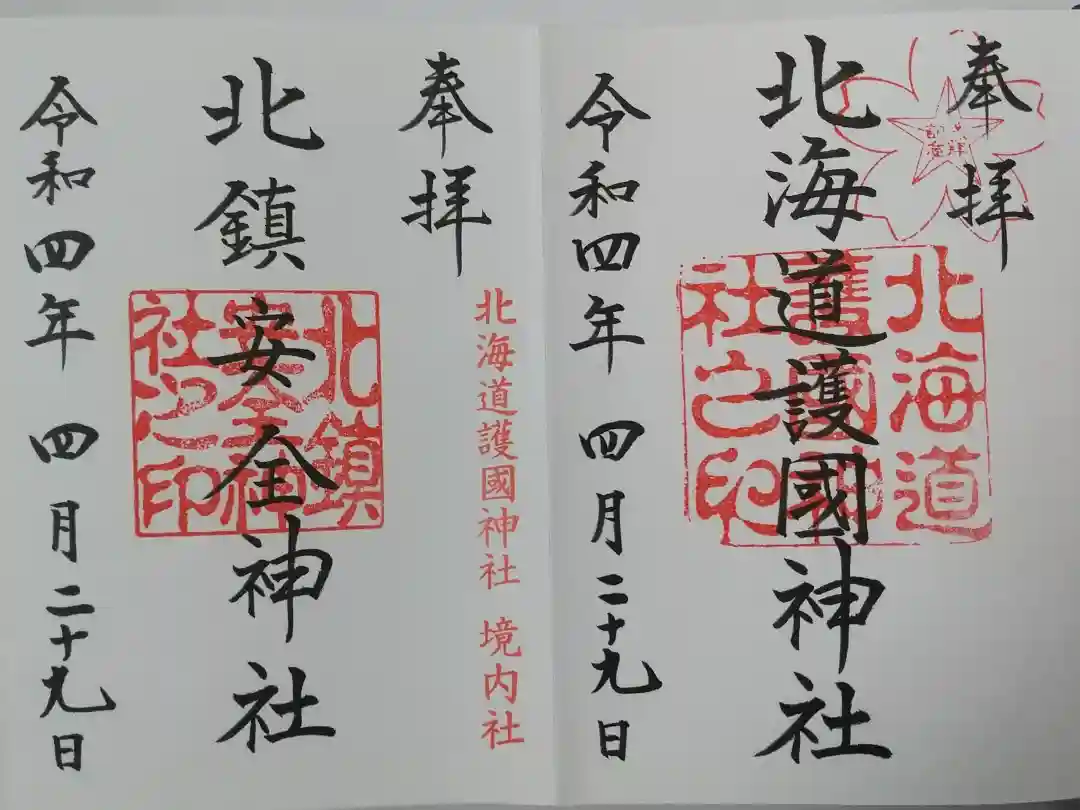 奉拝
北海道護國神社
北海道護國神社之印
令和四年 四月二十九日
奉拝
北海道護國神社 境内社
北鎮安全神社
北鎮安全神社之印
令和四年 四月二十九日